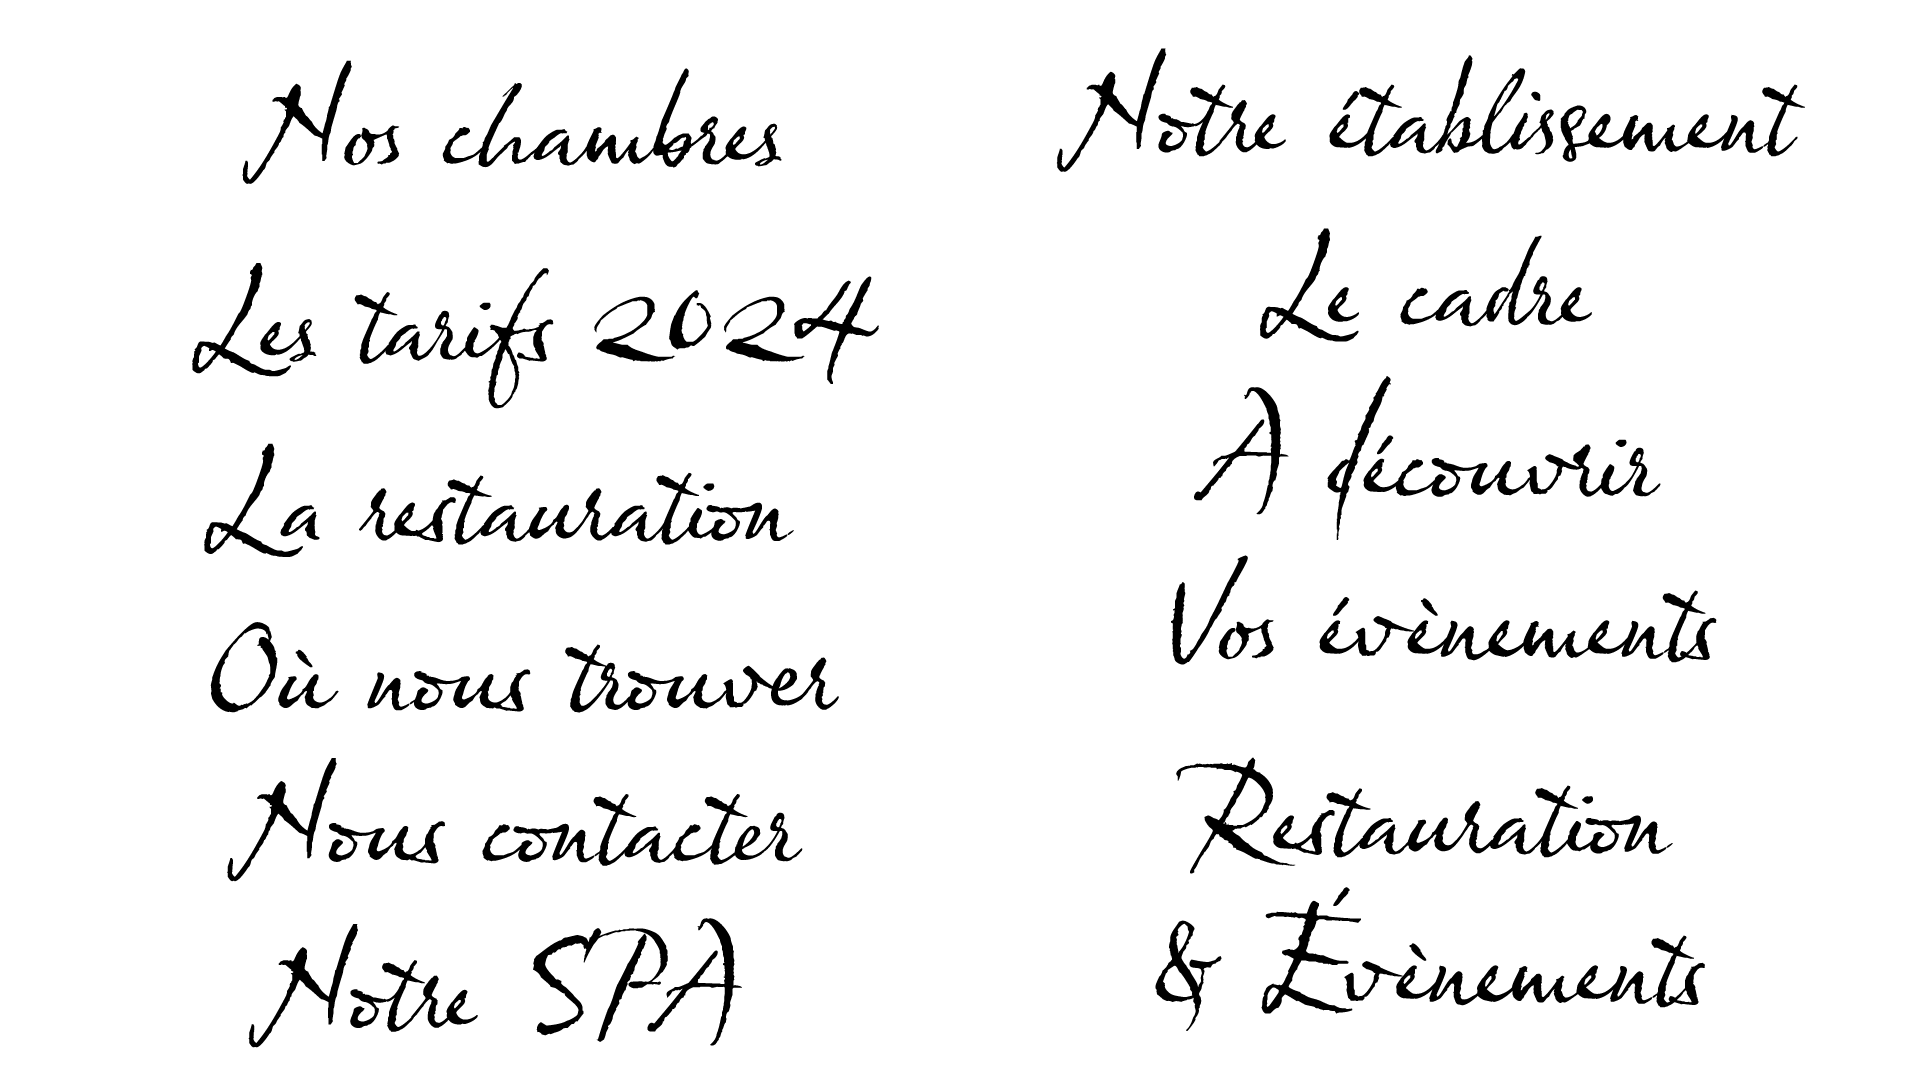 Nos chambres
Les tarifs 2024
La restauration
Où nous trouver
Nous contacter
Notre SPA
Notre établissement
Le cadre
A découvrir
Vos évènements
Restauration
& Évènements